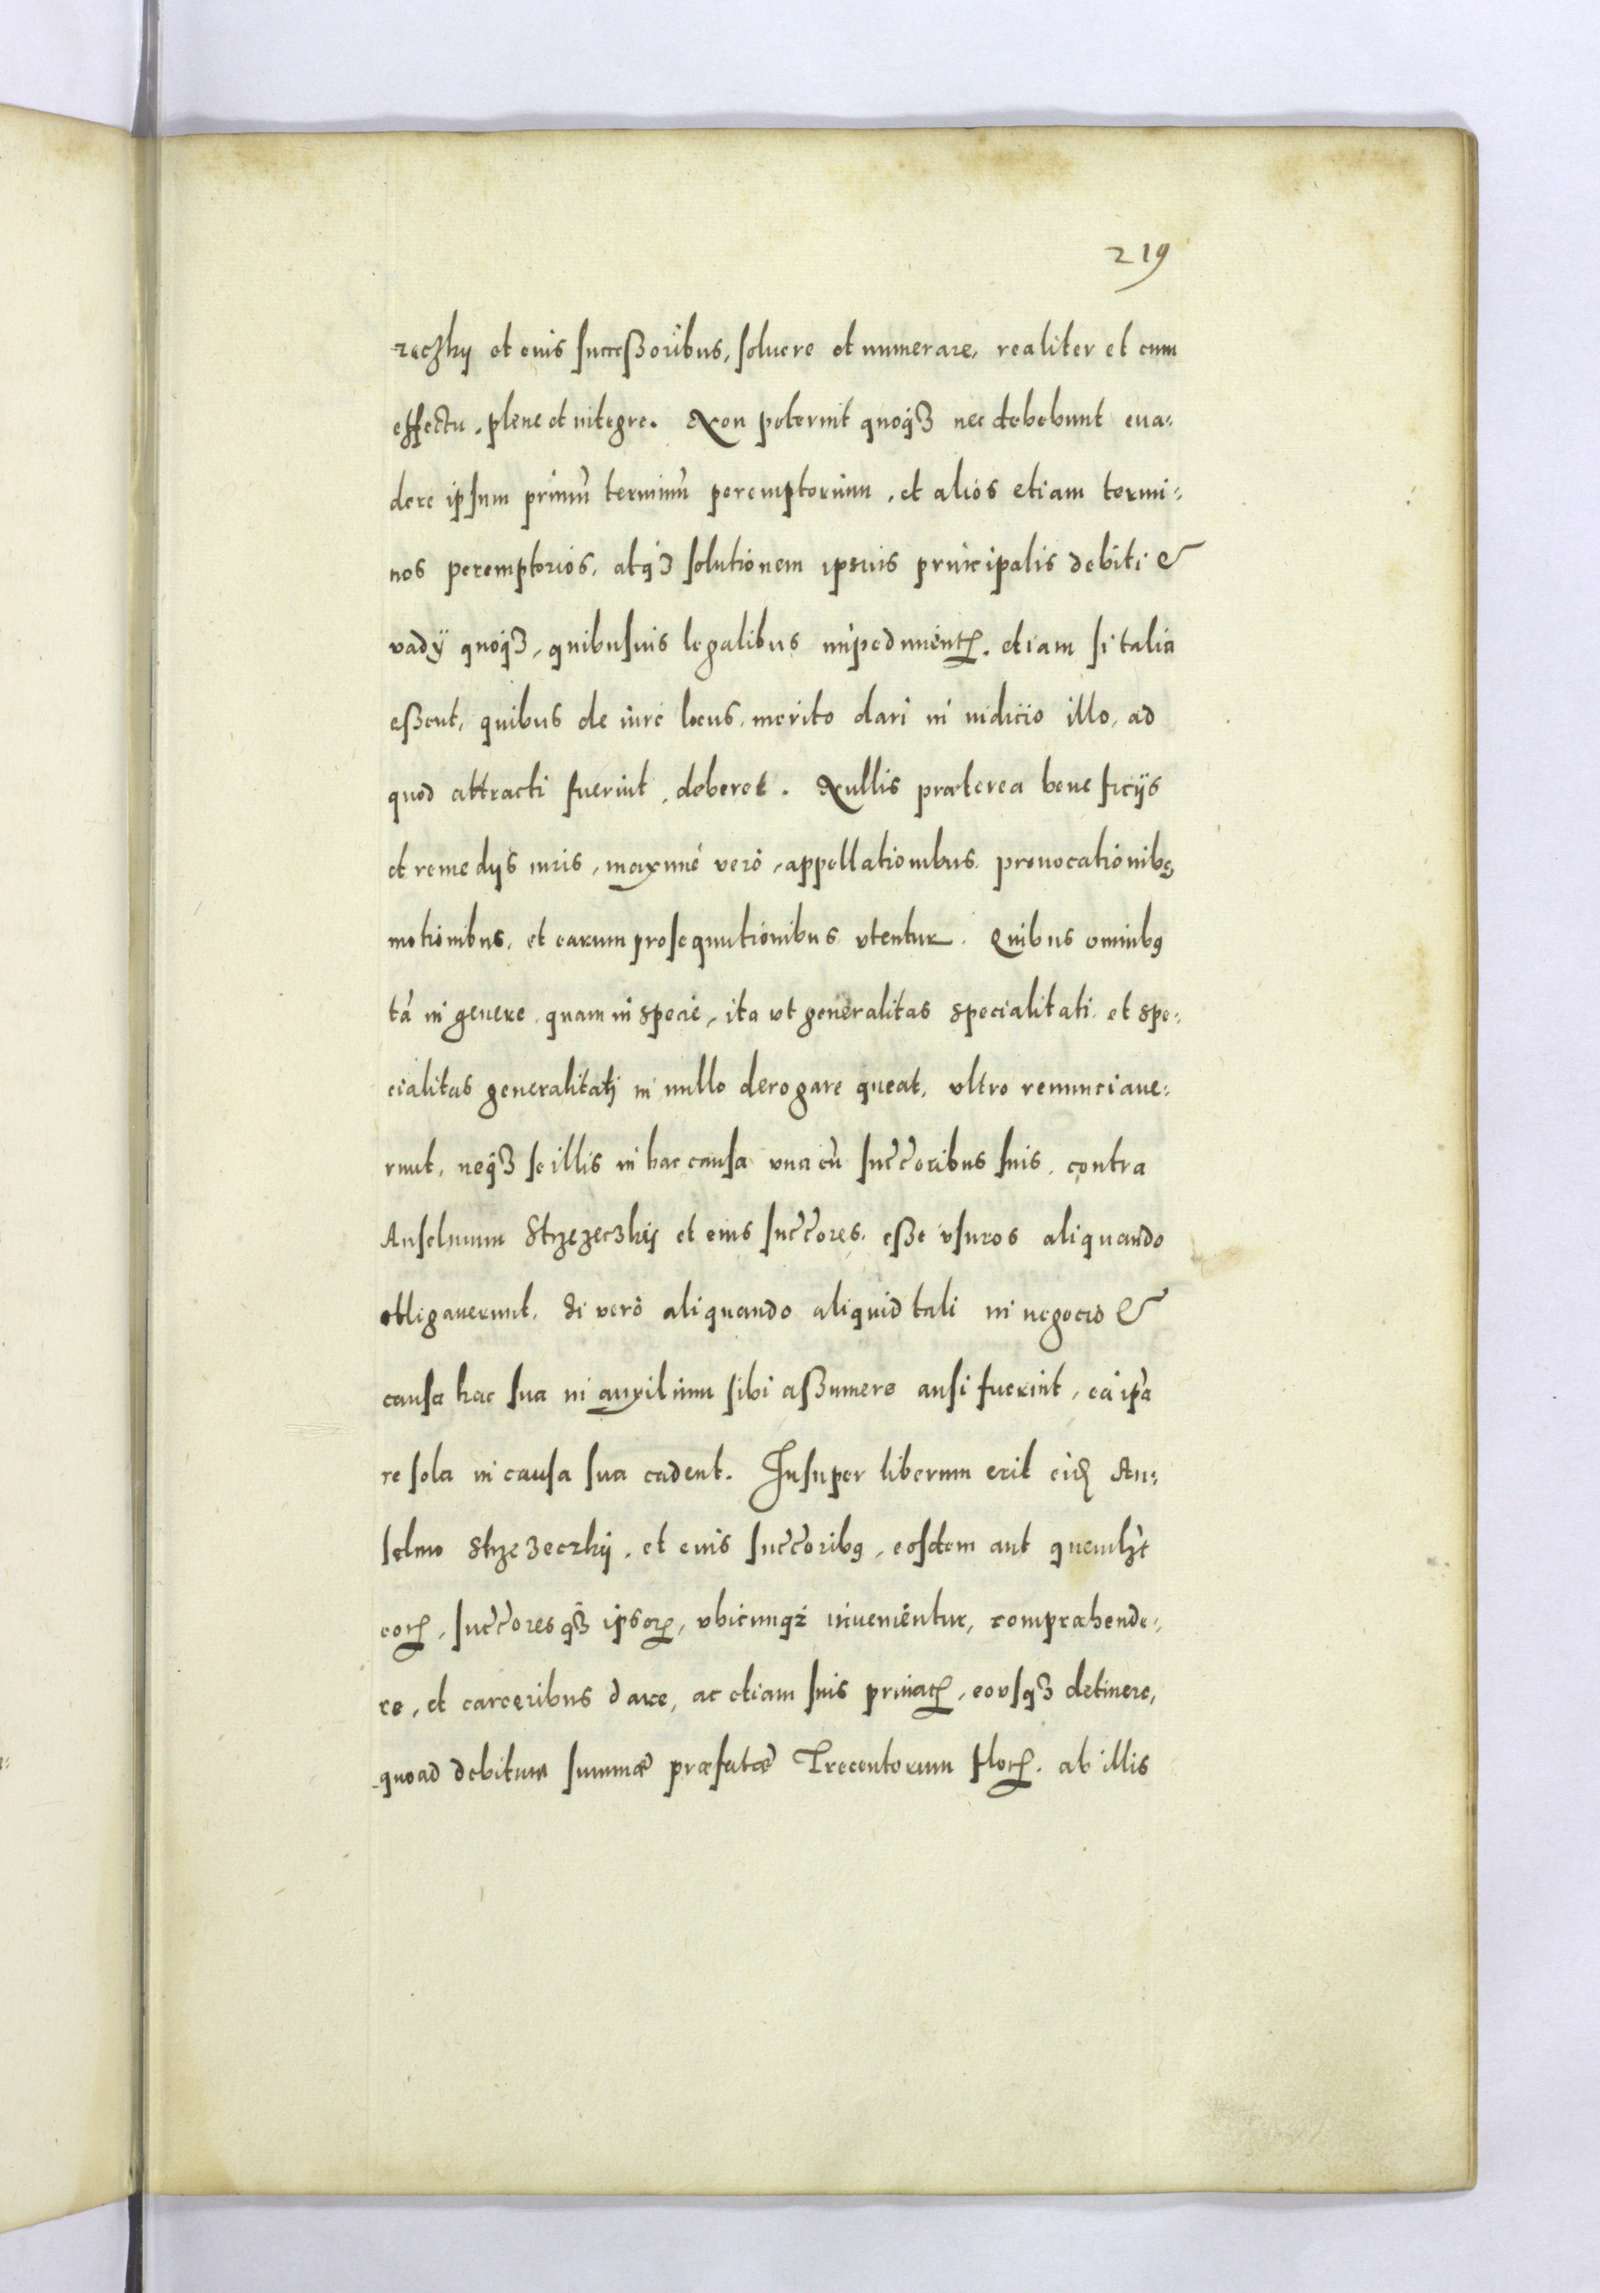 219
zeczkij et eius succeßoribus, soluere et numerare, realiter et cum
effectu, plene et integre. Non poterint quoqȝ nec debebunt eua-
dere ipsum primũ terminũ peremptorium, et alios etiam termi-
nos peremptorios, atqȝ solutionem ipsius principalis debiti &
vadÿ quoqȝ, quibusuis legalibus impedimentꝝ, etiam si talia
eßent, quibus de iure locus merito dari in iudicio illo, ad
quod attracti fuerint, deberet. Nullis præterea beneficijs
et remedijs iuris, maxime verò, appellationibus, prouocationibꝰ,
motionibus, et earum prosequutionibus vtentur. Quibus omnibꝰ
tã in genere quam in specie, ita vt generalitas specialitati, et spe-
cialitas generalitati in nullo derogare queat, vltro renunciaue-
runt, neqȝ se illis in hac causa vna cũ succ̃oribus suis, contra
Anselmum Strzezeczkij et eius succ̃ores, eße vsuros aliquando
obligauerunt. Si verò aliquando aliquid tali in negocio &
causa hac sua in auxilium sibi aßumere ausi fuerint, eà ip̃a
re sola in causa sua cadent. Insuper liberum erit eid An-
selmo Strzezeczkij, et eius succ̃oribꝰ, eosdem aut quemlꝫt
eorꝝ, succ̃oresqȝ ipsorꝝ, vbicunqȝ inuenientur, compræhende-
re, et carceribus dare, ac etiam suis priuatꝝ, eousqȝ detinere,
quoad debitum summæ præfatæ Trecentorum florꝝ. ab illis